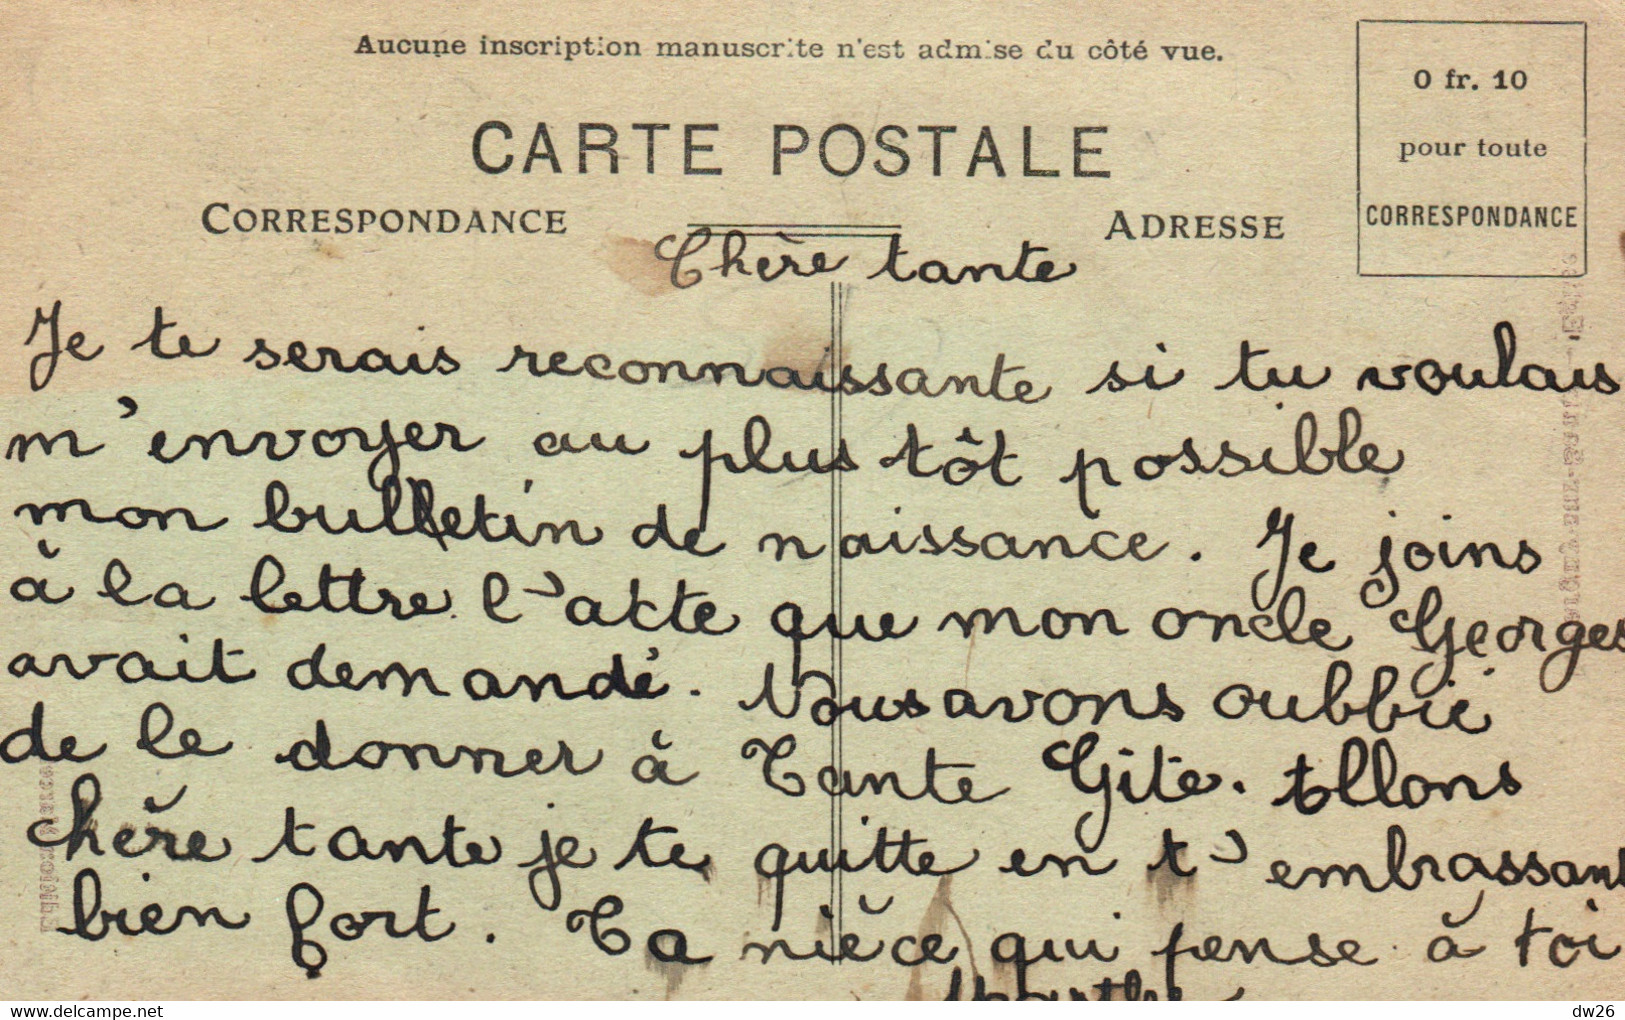 Aucune inscription manuscrite n'est admise du côté vue.
0 fr. 10
pour toute
CORRESPONDANCE
CARTE POSTALE
CORRESPONDANCE
ADRESSE
Chère tante
Je te serais reconnaissante si tu voulais
m'envoyer au plus tôt possible
mon bulletin de naissance. Je joins
à la lettre l'akte que mon oncle Georges
avait demandé. Nous avons oubbié
de le donner à Tante Gite. Allons
chère tante je te quitte en t'embrassant
bien fort. Ta nièce qui pense à toi
Marthe
https://www.delcampe.net
dw26